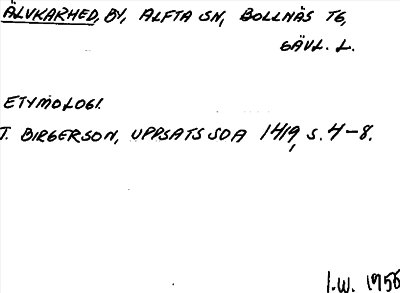 ÄLVKARHED, BY, ALFTA SN, BOLLNÄS TG,
GÄVL. L.
ETYMOLOGI.
T. BIRGERSON, UPPSATS SOA 1419, S. 4-8.
I.W. 1956